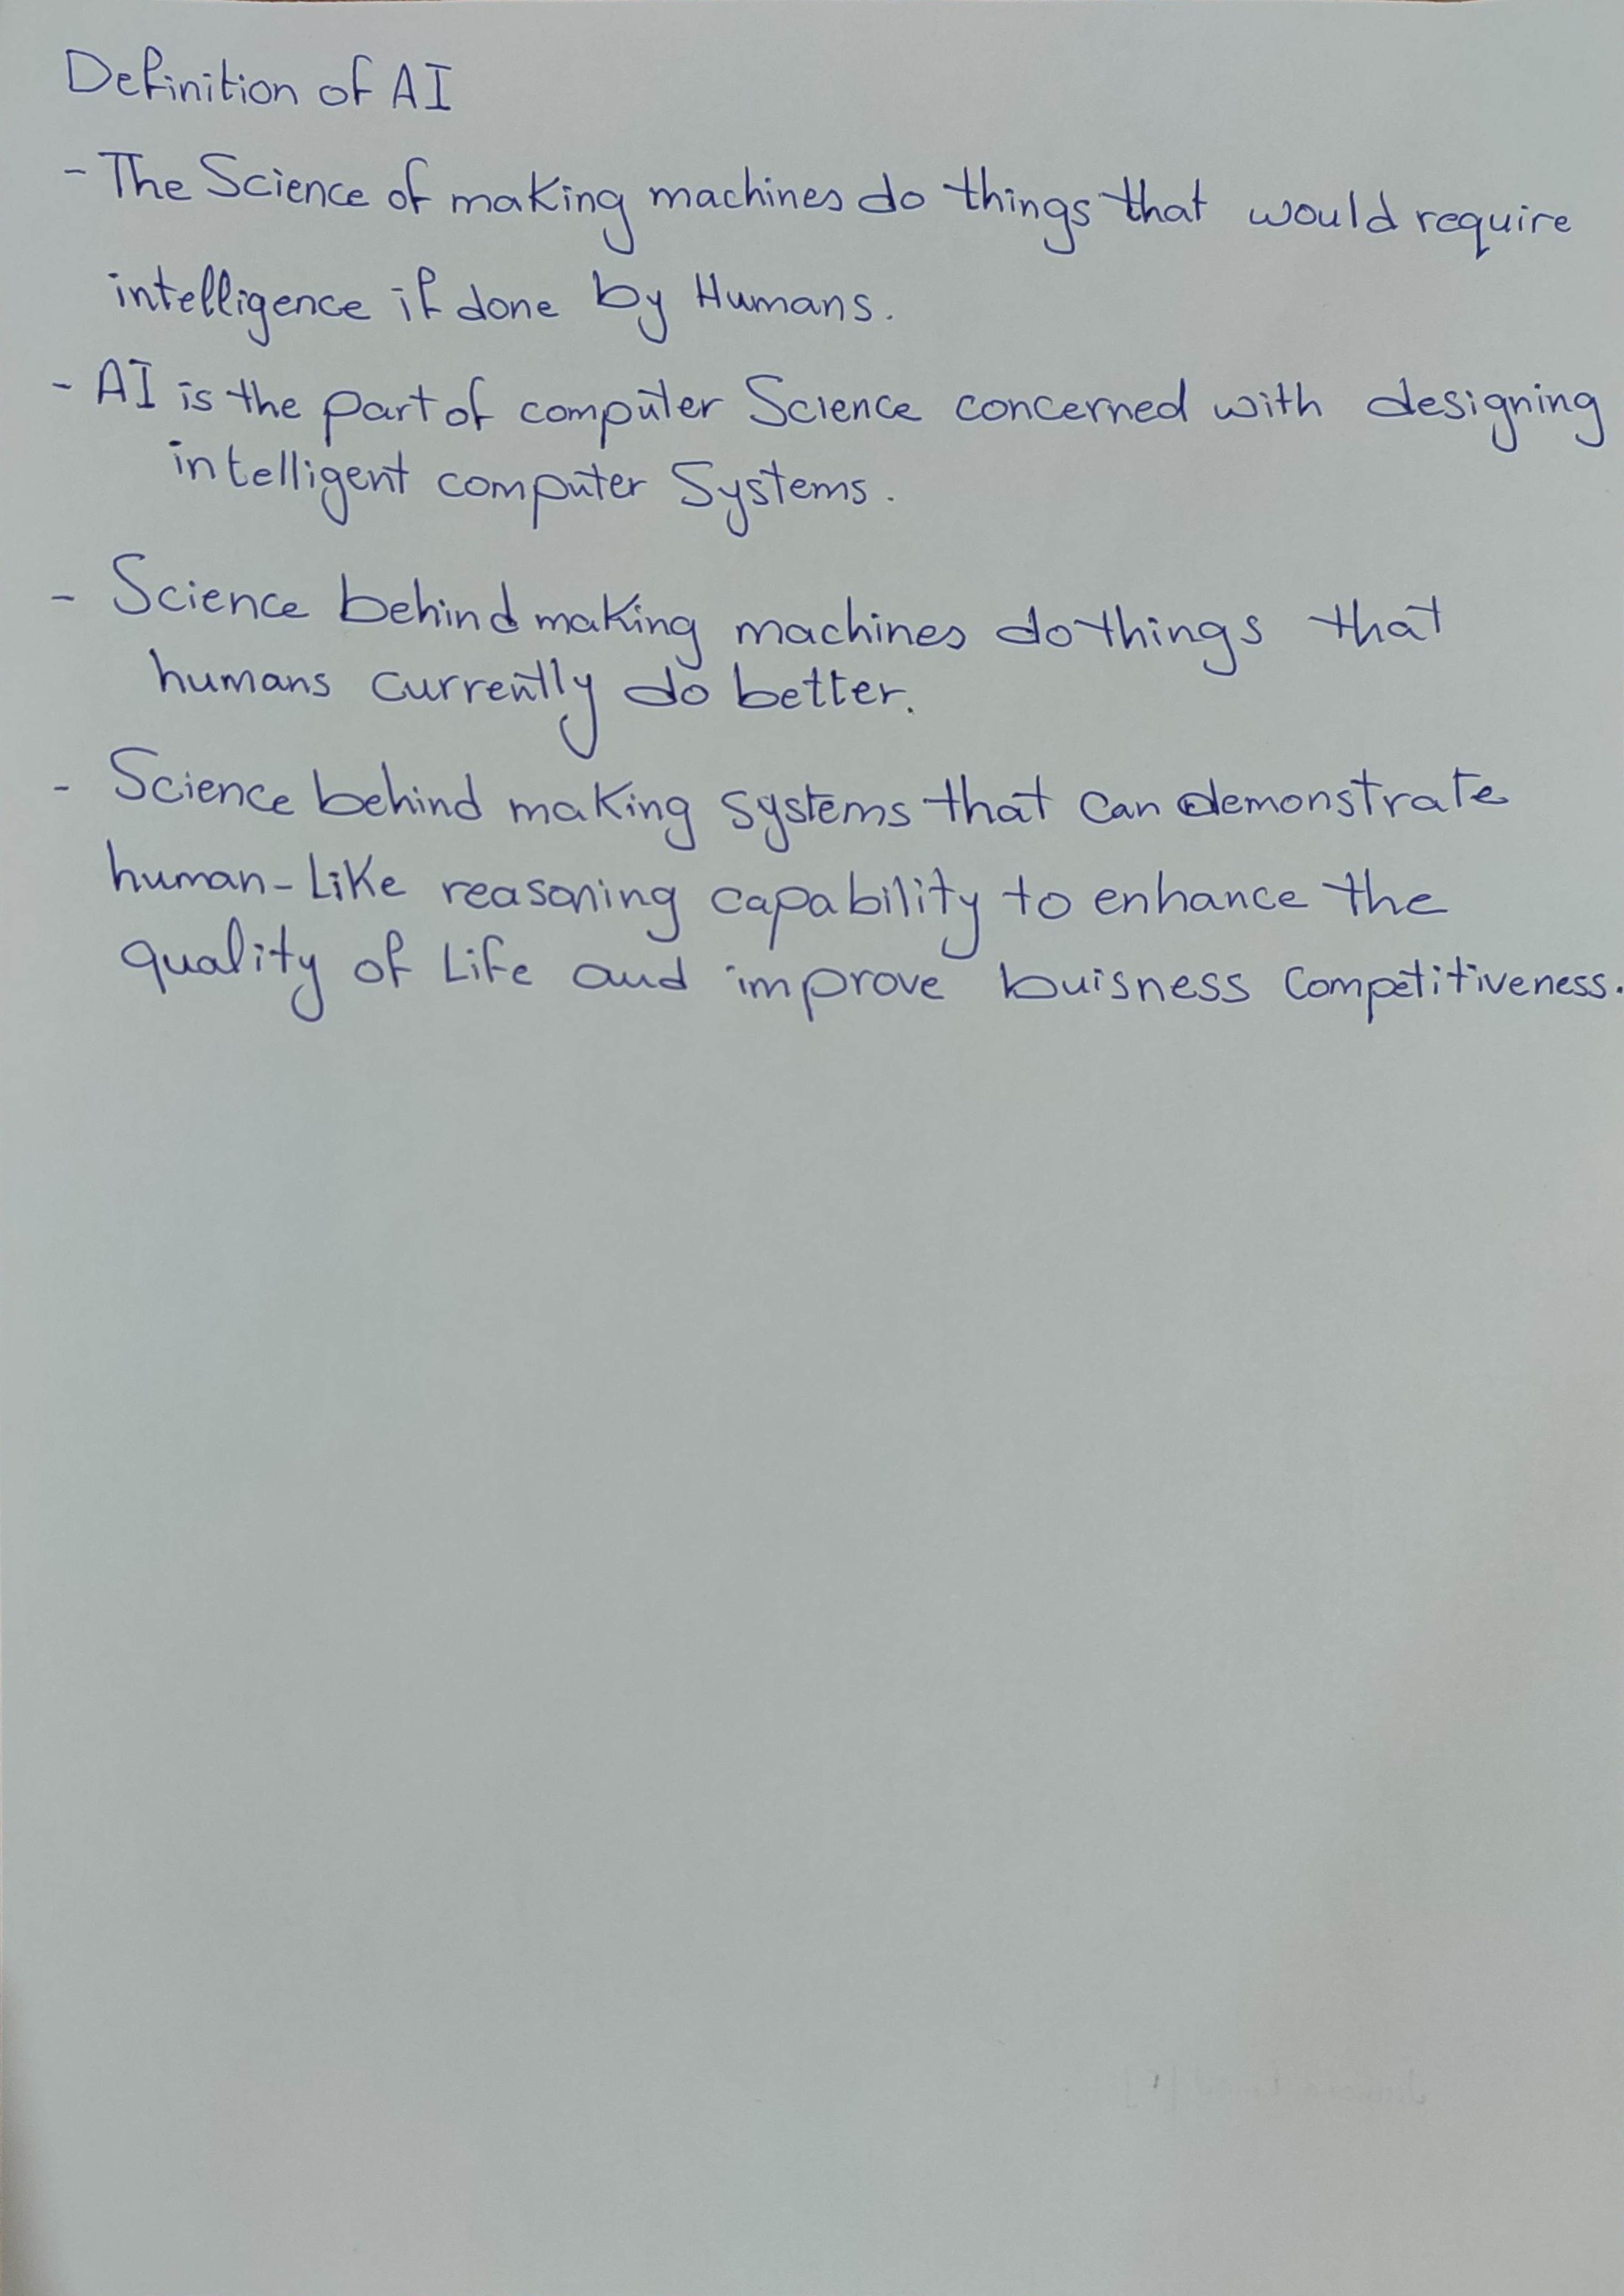 Definition of AI
- The Science of making machines do things that would require
intelligence if done by Humans.
- AI is the part of computer Science concerned with designing
intelligent computer Systems.
- Science behind making machines do things that
humans currently do better.
- Science behind making systems that can demonstrate
human-Like reasoning capability to enhance the
quality of Life and improve buisness Competitiveness.